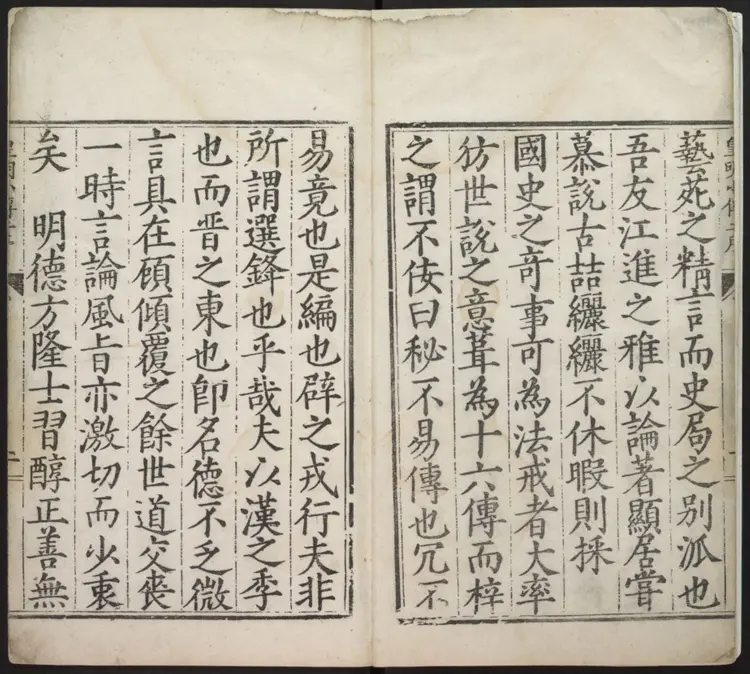 藝苑之精言而史局之別派也
吾友江進之雅以論著顯居嘗
慕說古喆纚纚不休暇則採
國史之奇事可為法戒者大率
彷世說之意葺為十六傳而梓
之謂不佞曰秘不易傳也冗不
易竟也是編也辟之戎行夫非
所謂選鋒也乎哉夫以漢之季
也而晋之東也卽名德不乏微
言具在頎傾覆之餘世道交喪
一時言論風旨亦激切而少衷
矣 明德方隆士習醇正善無